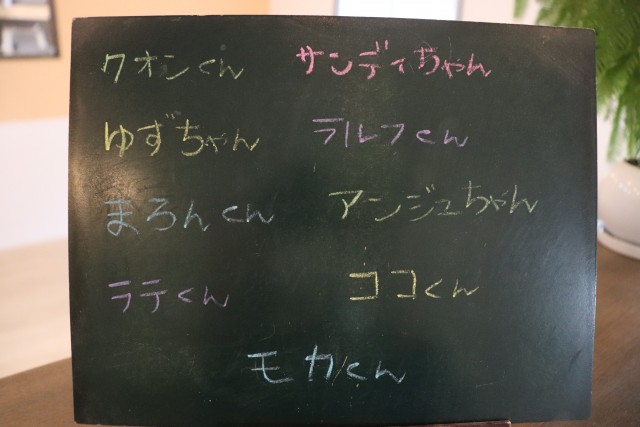 クオンくん サンディちゃん
ゆずちゃん ラルフくん
まろんくん アンジュちゃん
ラテくん ココくん
モカくん